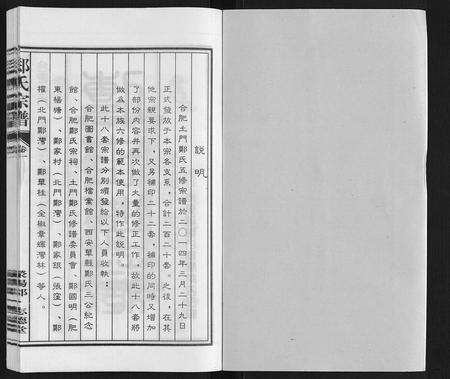 説明
合肥土門鄭氏五修宗譜於二〇一四年三月二十九日
正式發放于本宗各支系，合計二百二十套。之後，在其
他宗親要求下，又另補印二十二套，補印的同時又增加
了部份內容并再次做了大量的修正工作，故此十八套將
做爲本族六修的範本使用，特作此說明。
此十八套宗譜分別頒發給以下人員收執：
合肥圖書館、合肥檔案館、西安華縣鄭氏三公紀念
館、合肥鄭氏宗祠、土門鄭氏修譜委員會、鄭國明（肥
東楊塘）、鄭家村（北門鄭灣）、鄭家銀（張窪）、鄭
權（北門鄭灣）、鄭華桂（全椒章輝灣林）等人。
鄭氏宗譜
卷一
滎陽郡